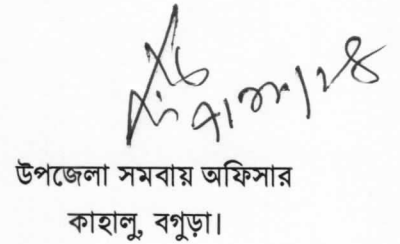 উপজেলা সমবায় অফিসার
কাহালু, বগুড়া।